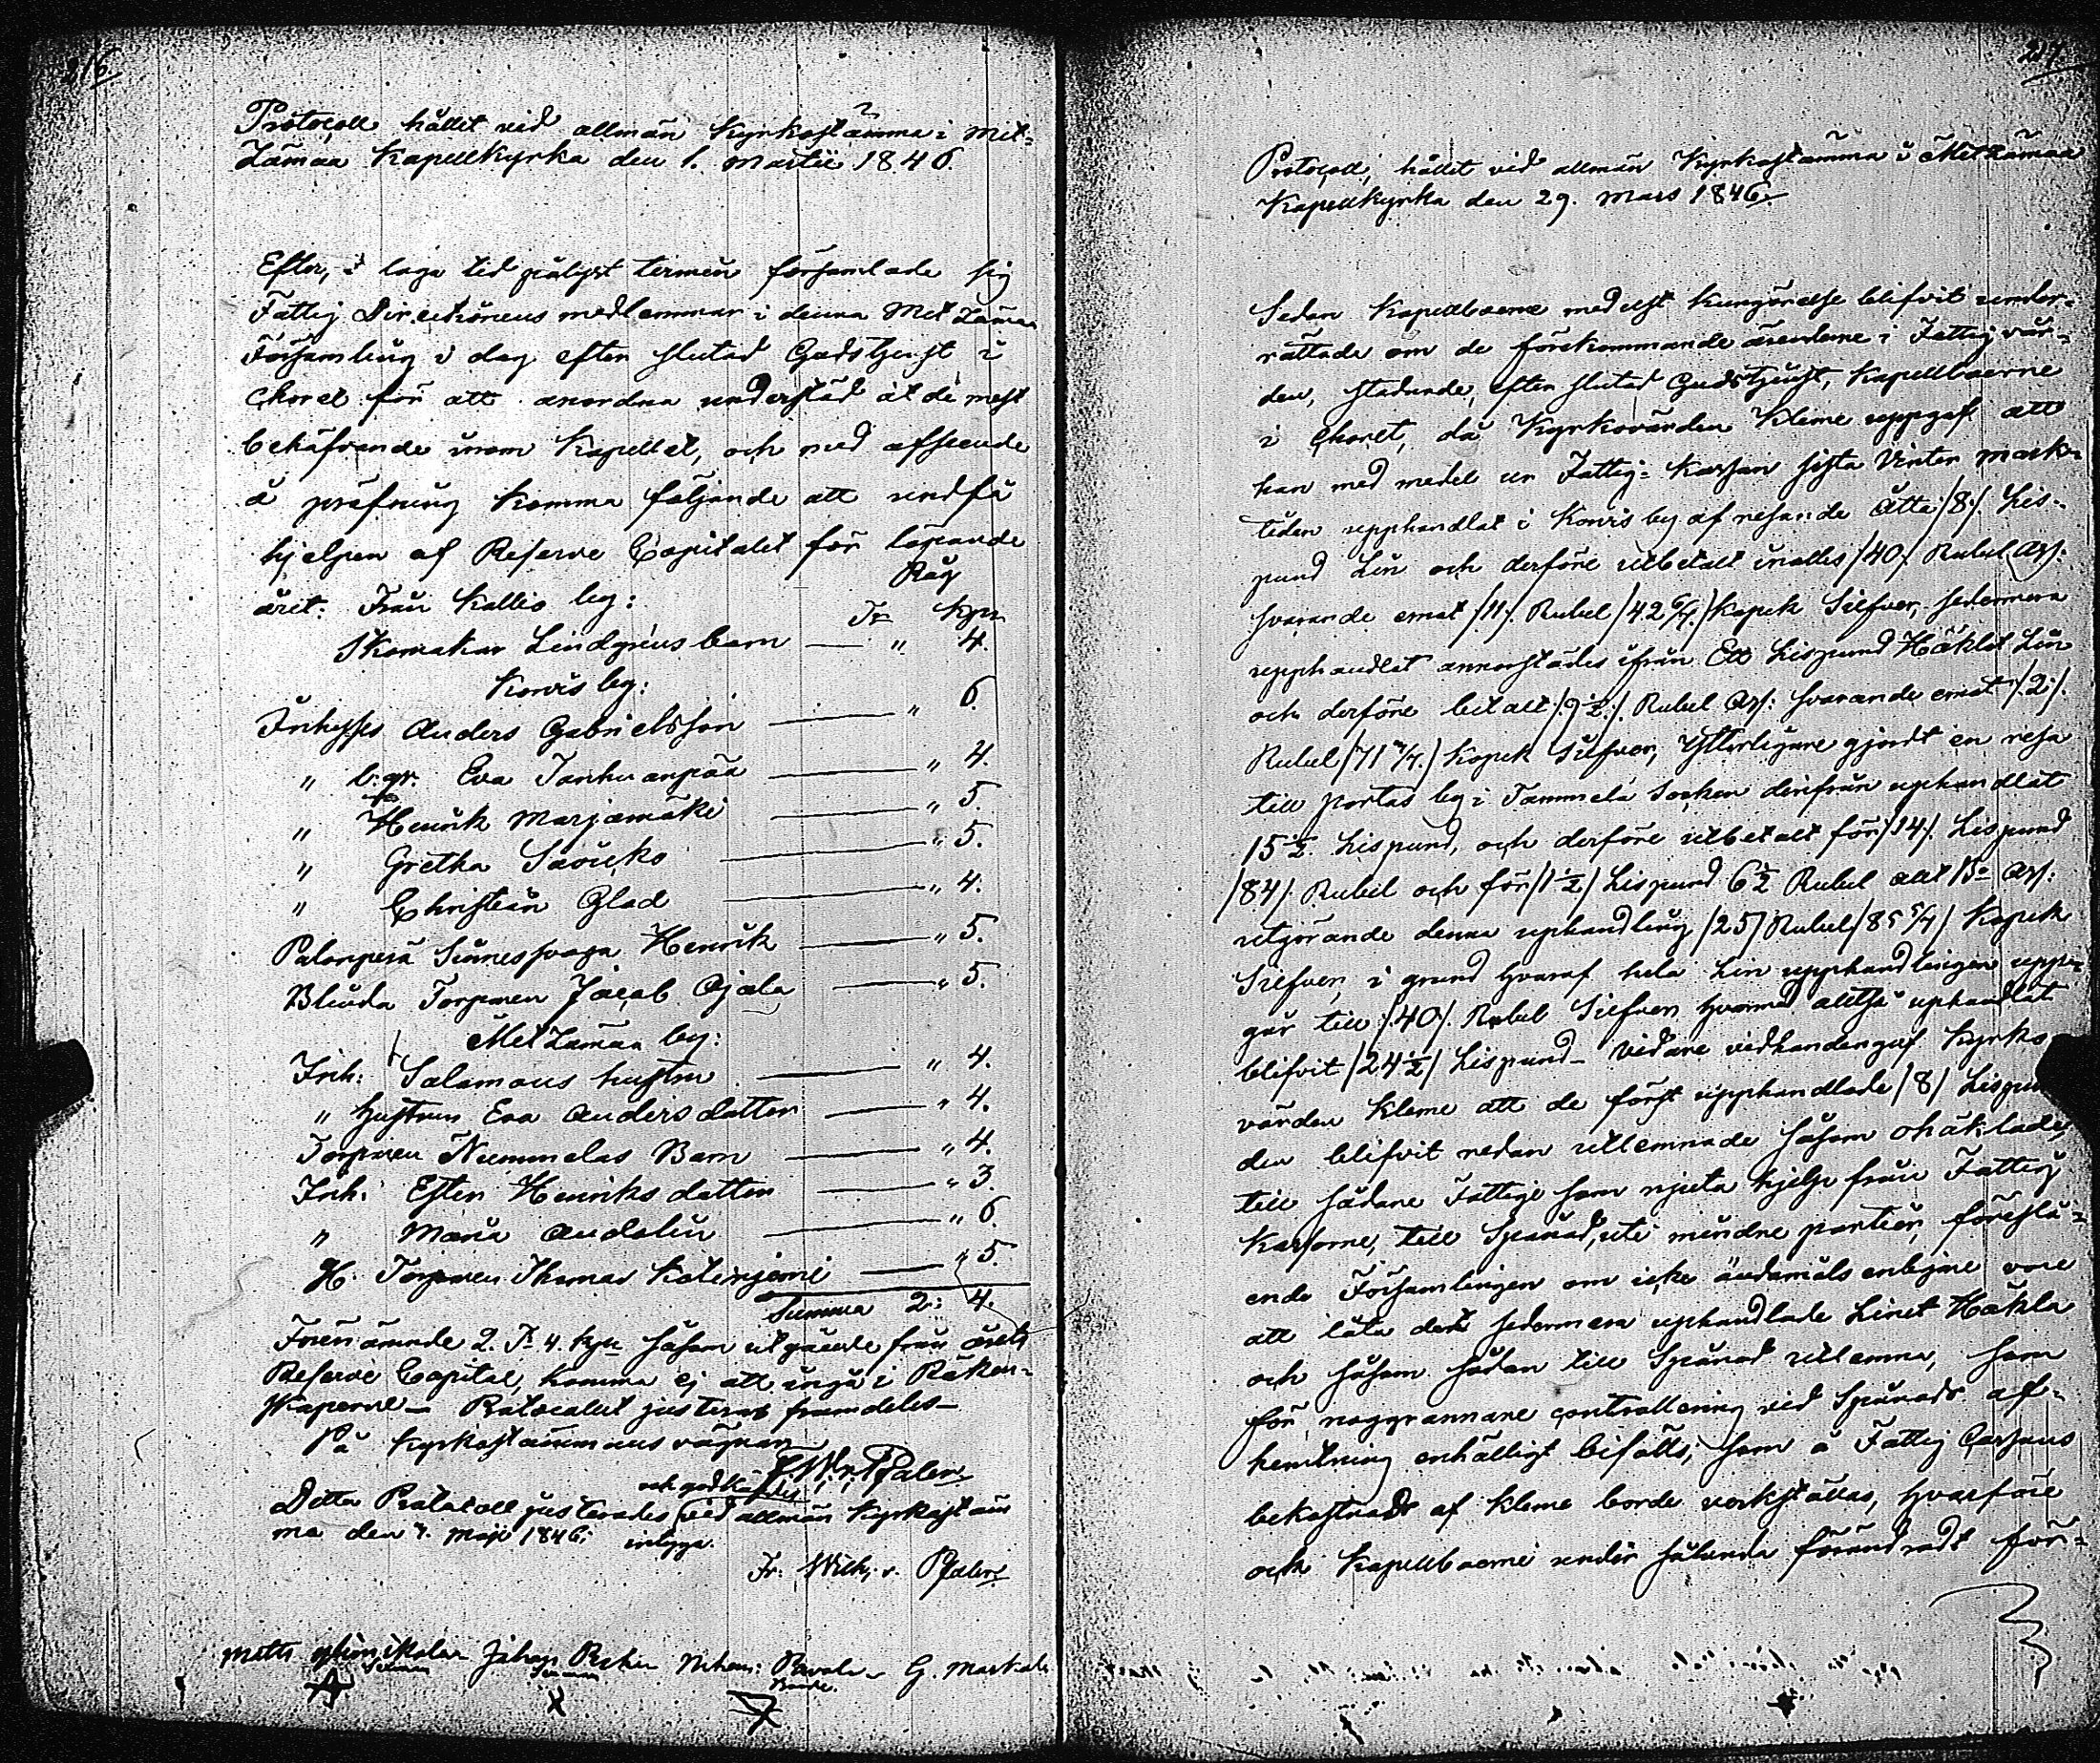 216.
Protocoll hållet vid allmän Kyrkostämma i Met-
zämaa Kapellkyrka den 1. Martii 1846.
Efter, i laga tid pålyst termin församlade sig
Fattig Directionens medlemmar i denna Metzämaa
Församling i dag efter slutad Gudstjenst i
Choret för att anordna understöd åt de mest
behöfvande inom Kapellet, och med afseende
å pröfning komma följande att undfå
hjelpen af Reserve Capitalet för löpande
Råg
året. Från Kallio by: Tr Kpr
Skomakar Lindgréns barn — " 4.
Konris by:
Inhyses Anders Gabrielsson — " 6.
" b: gr. Eva Tanhuanpää — " 4.
" Henrik Marjamäki — " 5.
" Gretha — " 5.
" Christian Glad — " 4.
Palonperä Henrik — " 5.
Blinda Torparen Jacob Ojala — " 5.
Metzämaa by:
Inh: Salomons hustru — " 4.
" hustrun Eva Andersdotter — " 4.
Torparen Nummelas Barn — " 4.
Inh: Ester Henriksdotter — " 3.
" Maria Andolin — " 6.
H. Torparen Thomas — " 5.
Summa 2: 4.
Förenämnde 2. Tr 4. kpr såsom utgående från årets
Reserve Capital, komma ej att ingå i Räken-
skaperne — Protocollet justeras framdeles —
På Kyrkostämmans vägnar
F. W. v. Pfaler
och godkändes
Detta Protocoll justerades vid allmän Kyrkostäm
ma den Maji 1846; intyga.
Fr. Wilh. v. Pfaler
Matts Johan G.
217.
Protocoll, hållet vid allmän Kyrkostämma i Metzämaa
Kapellkyrka den 29. Mars 1846.
Sedan Kapellboerne medelst kungörelse blifvit under-
rättade om de förekommande ärenderne i Fattigvår-
den, stadnade, efter slutad Gudstjenst, Kapellboerne
i Choret, då Kyrkovärden Kleme uppgaf att
han med medel ur Fattig-Kassan sista Vinter
tiden upphandlat i Konris by af resande Åtta /8/ Lis-
pund Lin och derföre utbetalt inalles /40/ Rubel Ass:
svarande emot /11/ Rubel /42 6/7/ Kopek Silfver, sedermera
upphandlat annorstädes ifrån Ett Lispund Häklat Lin
och derföre betalt /9½/ Rubel Ass: svarande emot /2/
Rubel /71 3/7/ Kopek Silfver, Ytterligare gjordt en resa
till Portas by i Tammela Socken derifrån uphandlat
15½ Lispund, och derföre utbetalt för /14/ Lispund
/84/ Rubel och för /1½/ Lispund 6½ Rubel allt Bo Ass:
utgörande denna uphandling /25/ Rubel /85 5/7/ Kopek
Silfver, i grund hvaraf hela Lin upphandlingen uppe-
går till /40/ Rubel Silfver, hvarmed alltså uphandlat
blifvit /24½/ Lispund — Vidare vidhandengaf Kyrko
värden Kleme att de först upphandlade /8/ Lispund
den blifvit redan utlemnade såsom ohäklade,
till sådane Fattige som njuta hjelp från Fattig
Kassorne, till Spånad, uti mindre partier, föreslå-
ende Församlingen om icke ändamålsenligare vore
att låta det sedermera uphandlade Linet Häkla
och såsom sådan till Spånad utlemna, som
för noggrannare controllering vid Spånads af-
hemtning enhälligt bifölls, som å Fattig Cassans
bekostnad af Kleme borde verkställas, hvarföre
och Kapellboerne under sålunda förändradt för-